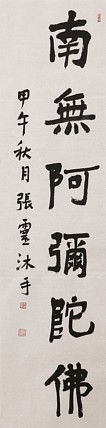 南無阿彌陀佛
甲午秋月張靈沐手